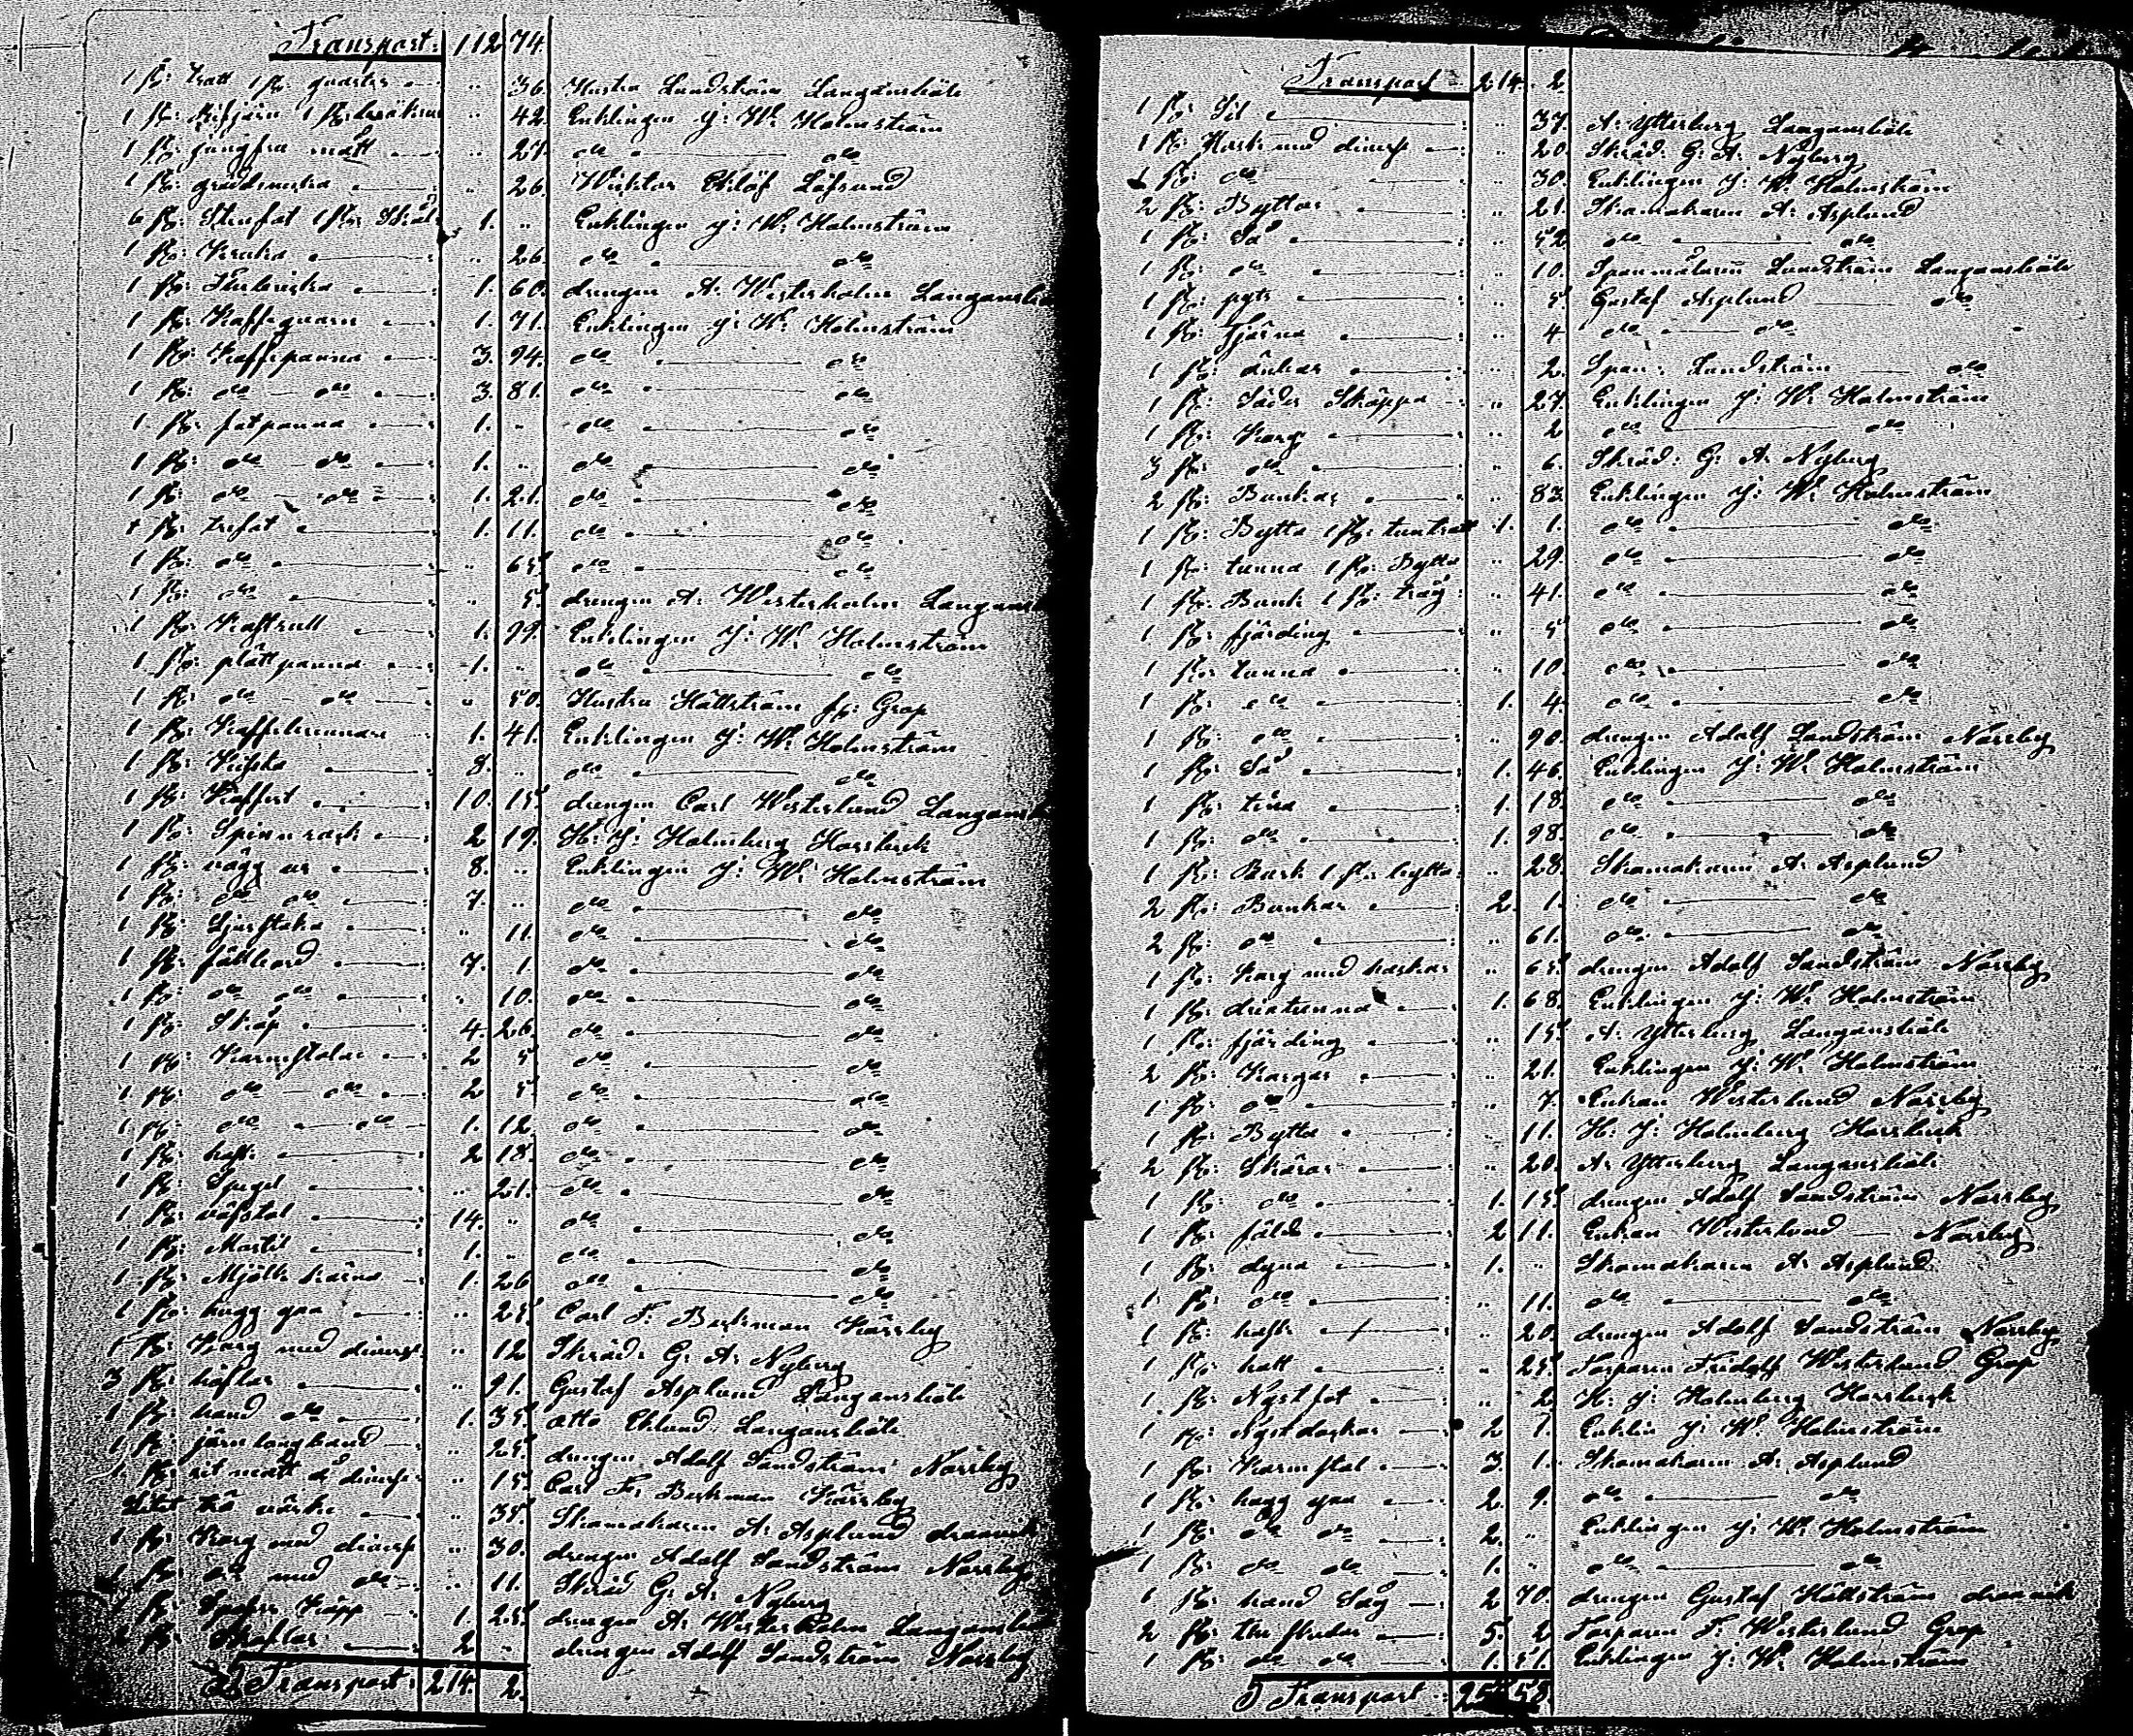 Transport: 112 74.
1 st: tratt 1 st: quarter .. 36. Hustru Lundström Långansböle
1 st: Rifjärn .. 42. Enklingen J: W: Holmström
1 st: jungfru mått .. 27. do do
1 st: gräddsnicka .. 26. Wiktor Eklöf Löfsund
6 st: Stenfat 1 st: Skål 1. .. Enklingen J: W: Holmström
1 st: Kruka .. 26. do do
1 st: 1. 60. drengen A: Westerholm Långansböle
1 st: Kaffequarn 1. 71. Enklingen J: W: Holmström
1 st: Kaffepanna 3. 94. do do
1 st: do do 3. 81. do do
1 st: fotpanna 1. .. do do
1 st: do do 1. .. do do
1 st: do do 1. 21. do do
1 st: trefot 1. 11. do do
1 st: do .. 65. do do
1 st: do .. 5. drengen A: Westerholm Långansb
1 st: Kastrull 1. 99. Enklingen J: W: Holmström
1 st: plättpanna 1. .. do do
1 st: do do .. 50. Hustru Hällström fr: Grop
1 st: Kaffebrännare 1. 41. Enklingen J: W: Holmström
1 st: Kista 8. .. do do
1 st: Koffert 10. 15. drengen Carl Westerlund Långansb
1 st: Spinnrock 2 19. H: J: Holmberg Horsbäck
1 st: vägg ur 8. .. Enklingen J: W: Holmström
1 st: do do 7. .. do do
1 st: Ljusstaka .. 11. do do
1 st: fällbord 7. 1. do do
1 st: do do .. 10. do do
1 st: Skåp 4. 26. do do
1 st: Karmstolar 2 5 do do
1 st: do do 2 5 do do
1 st: do do 1. 12. do do
1 st: haft 2 18. do do
1 st: Spegel .. 21. do do
1 st: väfstol 14. .. do do
1 st: Mortel 1. .. do do
1 st: Mjölk kärna 1. 26 do do
1 st: hugg yxa .. 25. Carl F: Berkman Kärrby
1 st: Korg med diverse .. 12 Skräd: G: A: Nyberg
3 st: höflar .. 91. Gustaf Asplund Långansböle
1 st: hand do 1. 35. Otto Eklund Långansböle
1 st: järn långband .. 25. drengen Adolf Sandström Norrby
1 st: rit mått å diverse .. 15. Carl F: Berkman Kärrby
Litet trä värke .. 35. Skomakaren A: Asplund
1 st: Korg med diverse .. 30. drengen Adolf Sandström Norrby
1 st: do med do .. 11. Skräd G: A: Nyberg
1 st: käpp 1. 25. drengen A: Westerholm Långansböle
st: 2 .. drengen Adolf Sandström Norrby
Transport: 214. 2.
Transport 214. 2.
1 st: Sil .. 37. A: Ytterberg Långansböle
1 st: Kork med diverse .. 20. Skräd: G: A: Nyberg
1 st: do .. 30. Enklingen J: W: Holmström
2 st: Byttor .. 21. Skomakaren A: Asplund
1 st: Så .. 52 do do
1 st: do .. 10. Spanmålaren Lundström Långansböle
1 st: pyts .. 5 Gustaf Asplund do
1 st: Tjärna .. 4 do do
1 st: ankar .. 2. Span: Lundström do
1 st: Sådes Skäppa .. 27. Enklingen J: W: Holmström
1 st: Korg .. 2 do do
3 st: do .. 6. Skräd: G: A: Nyberg
2 st: Bunkar .. 83. Enklingen J: W: Holmström
1 st: Bytta 1 st: 1. 1. do do
1 st: tunna 1 st: Bytta .. 29. do do
1 st: Bunk 1 st: tråg .. 41. do do
1 st: fjärding .. 5 do do
1 st: tunna .. 10. do do
1 st: do 1. 4. do do
1 st: do .. 90. drengen Adolf Sandström Norrby
1 st: Så 1. 46. Enklingen J: W: Holmström
1 st: tina 1. 18. do do
1 st: do 1. 98. do do
1 st: Bunk 1 st: bytta .. 28. Skomakaren A: Asplund
2 st: Bunkar 2. 1. do do
2 st: do .. 61. do do
1 st: Korg med korkar .. 65. drengen Adolf Sandström Norrby
1 st: dricktunna 1. 68. Enklingen J: W: Holmström
1 st: fjärding .. 15. A: Ytterberg Långansböle
2 st: Korgar .. 21. Enklingen J: W: Holmström
1 st: do .. 7. Enkan Westerlund Norrby
1 st: Bytta .. 11. H: J: Holmberg Horsbäck
2 st: Skäror .. 20. A: Ytterberg Långansböle
1 st: do 1. 15. drengen Adolf Sandström Norrby
1 st: fäld 2 11. Enkan Westerlund Norrby
1 st: dyna 1. .. Skomakaren A: Asplund
1 st: do .. 11. do do
1 st: haft .. 20. drengen Adolf Sandström Norrby
1 st: hatt .. 25. Torparen Fridolf Westerlund Grop
1 st: Nystfot .. 2 H: J: Holmberg Horsbäck
1 st: 2 7. Enklin J: W: Holmström
1 st: Karmstol 3. 1. Skomakaren A: Asplund
1 st: hugg yxa 2. 9. do do
1 st: do do 2. .. Enklingen J: W: Holmström
1 st: do do 1. .. do do
1 st: hand Såg 2 70. drengen Gustaf Hällström
2 st: 5. 2 Torparen F: Westerlund Grop
1 st: do do 1. 51. Enklingen J: W: Holmström
Transport 58.